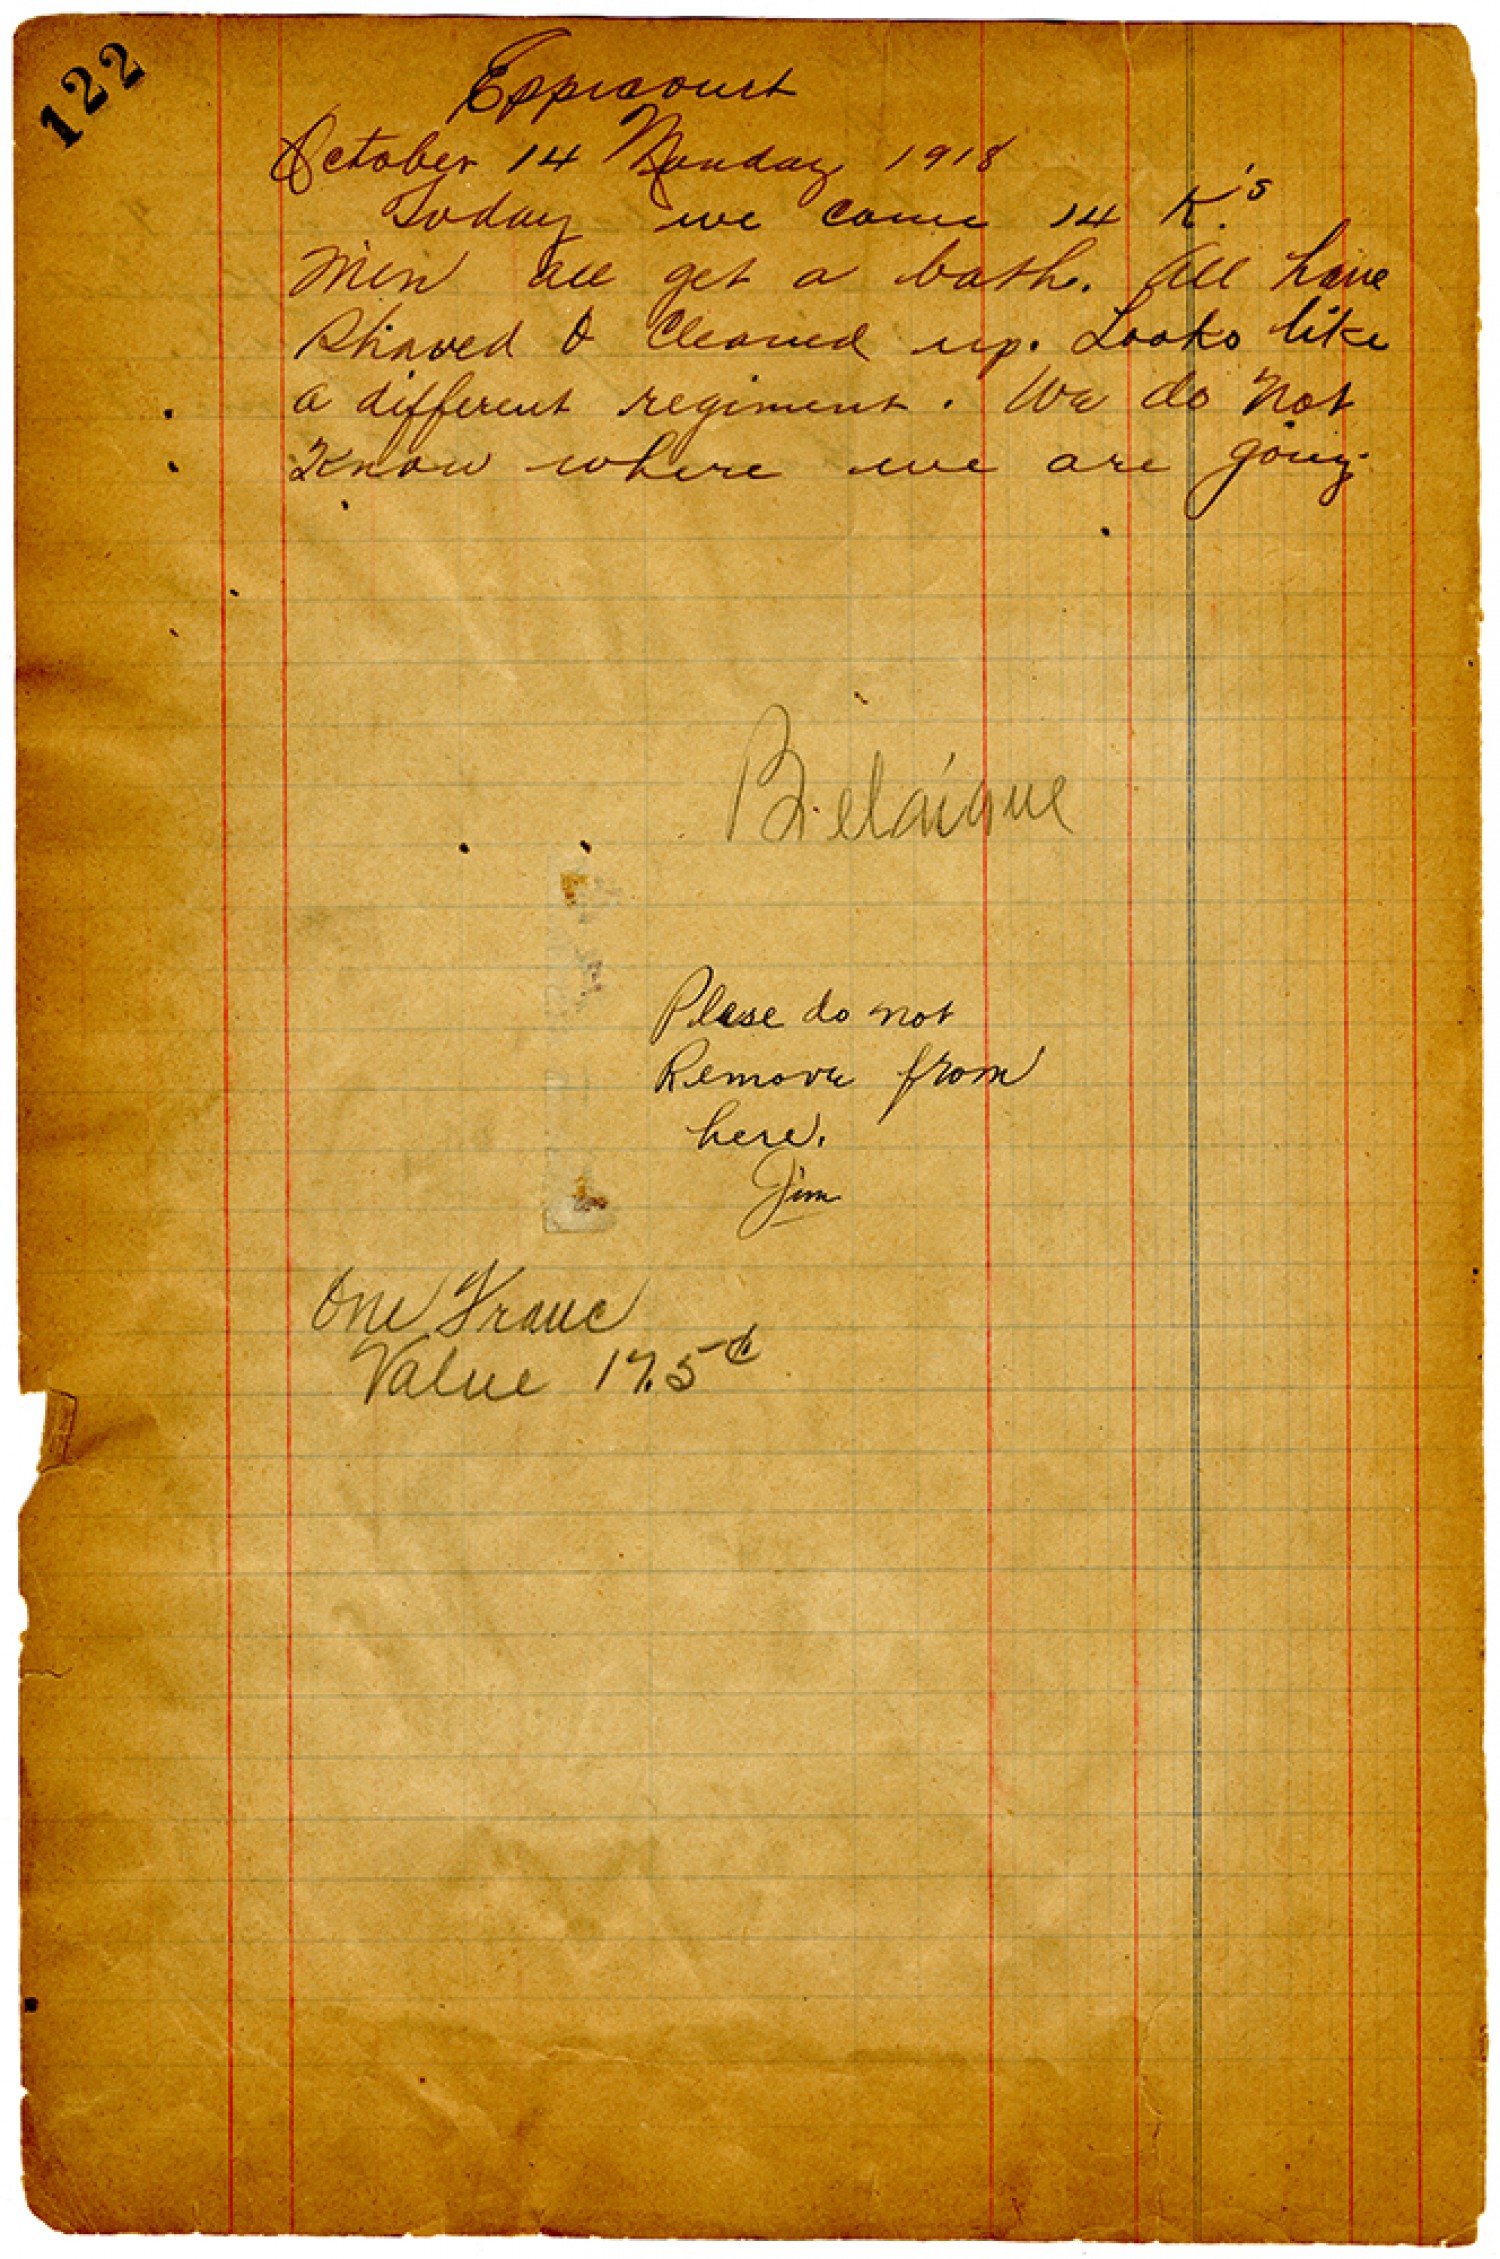 122
Eppicourt
October 14 Monday 1918
Today we come 14 K.'s
Men all get a bath. All have
Shaved & Cleaned up. Looks like
a different regiment. We do Not
Know where we are going.
Belgique
Please do not
Remove from
here.
Jim
One Franc
Value 17.5¢